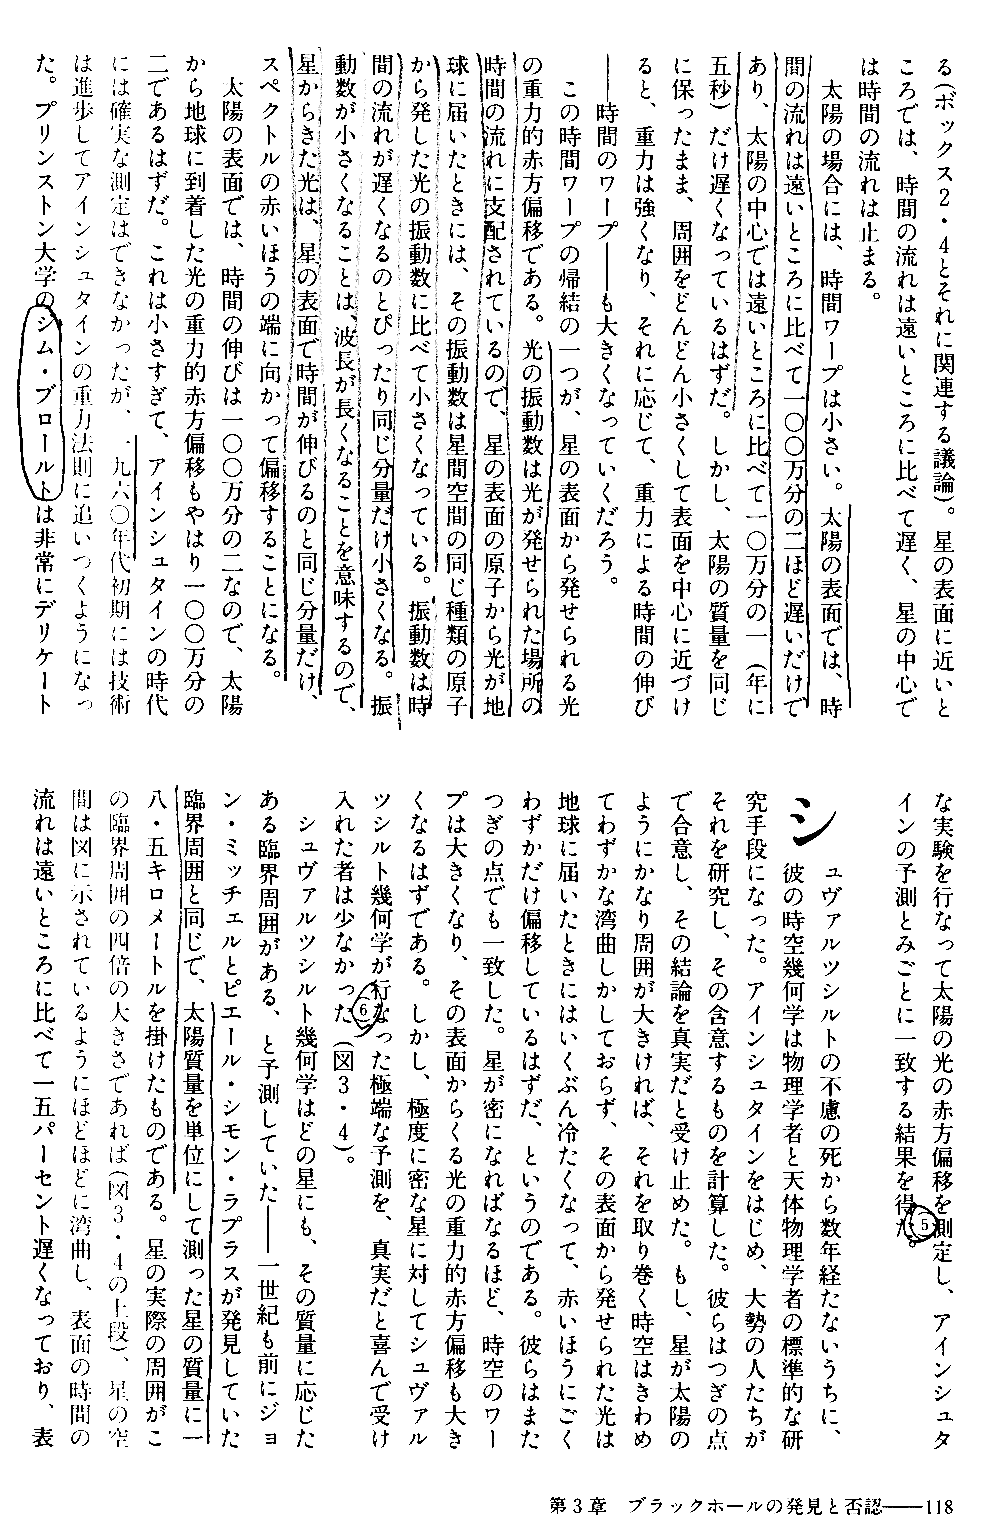 る(ボックス2・4とそれに関連する議論)。星の表面に近いと
ころでは、時間の流れは遠いところに比べて遅く、星の中心で
は時間の流れは止まる。
太陽の場合には、時間ワープは小さい。太陽の表面では、時
間の流れは遠いところに比べて一〇〇万分の二ほど遅いだけで
あり、太陽の中心では遠いところに比べて一〇万分の一(年に
五秒)だけ遅くなっているはずだ。しかし、太陽の質量を同じ
に保ったまま、周囲をどんどん小さくして表面を中心に近づけ
ると、重力は強くなり、それに応じて、重力による時間の伸び
――時間のワープ――も大きくなっていくだろう。
この時間ワープの帰結の一つが、星の表面から発せられる光
の重力的赤方偏移である。光の振動数は光が発せられた場所の
時間の流れに支配されているので、星の表面の原子から光が地
球に届いたときには、その振動数は星間空間の同じ種類の原子
から発した光の振動数に比べて小さくなっている。振動数は時
間の流れが遅くなるのとぴったり同じ分量だけ小さくなる。振
動数が小さくなることは、波長が長くなることを意味するので、
星からきた光は、星の表面で時間が伸びるのと同じ分量だけ、
スペクトルの赤いほうの端に向かって偏移することになる。
太陽の表面では、時間の伸びは一〇〇万分の二なので、太陽
から地球に到着した光の重力的赤方偏移もやはり一〇〇万分の
二であるはずだ。これは小さすぎて、アインシュタインの時代
には確実な測定はできなかったが、一九六〇年代初期には技術
は進歩してアインシュタインの重力法則に追いつくようになっ
た。プリンストン大学のジム・ブロールトは非常にデリケート
な実験を行なって太陽の光の赤方偏移を測定し、アインシュタ
インの予測とみごとに一致する結果を得た。5
シュヴァルツシルトの不慮の死から数年経たないうちに、
彼の時空幾何学は物理学者と天体物理学者の標準的な研
究手段になった。アインシュタインをはじめ、大勢の人たちが
それを研究し、その含意するものを計算した。彼らはつぎの点
で合意し、その結論を真実だと受け止めた。もし、星が太陽の
ようにかなり周囲が大きければ、それを取り巻く時空はきわめ
てわずかな湾曲しかしておらず、その表面から発せられた光は
地球に届いたときにはいくぶん冷たくなって、赤いほうにごく
わずかだけ偏移しているはずだ、というのである。彼らはまた
つぎの点でも一致した。星が密になればなるほど、時空のワー
プは大きくなり、その表面からくる光の重力的赤方偏移も大き
くなるはずである。しかし、極度に密な星に対してシュヴァル
ツシルト幾何学が行なった極端な予測を、真実だと喜んで受け
入れた者は少なかった6(図3・4)。
シュヴァルツシルト幾何学はどの星にも、その質量に応じた
ある臨界周囲がある、と予測していた――一世紀も前にジョ
ン・ミッチェルとピエール・シモン・ラプラスが発見していた
臨界周囲と同じで、太陽質量を単位にして測った星の質量に一
八・五キロメートルを掛けたものである。星の実際の周囲がこ
の臨界周囲の四倍の大きさであれば(図3・4の上段)、星の空
間は図に示されているようにほどほどに湾曲し、表面の時間の
流れは遠いところに比べて一五パーセント遅くなっており、表
第3章 ブラックホールの発見と否認――118